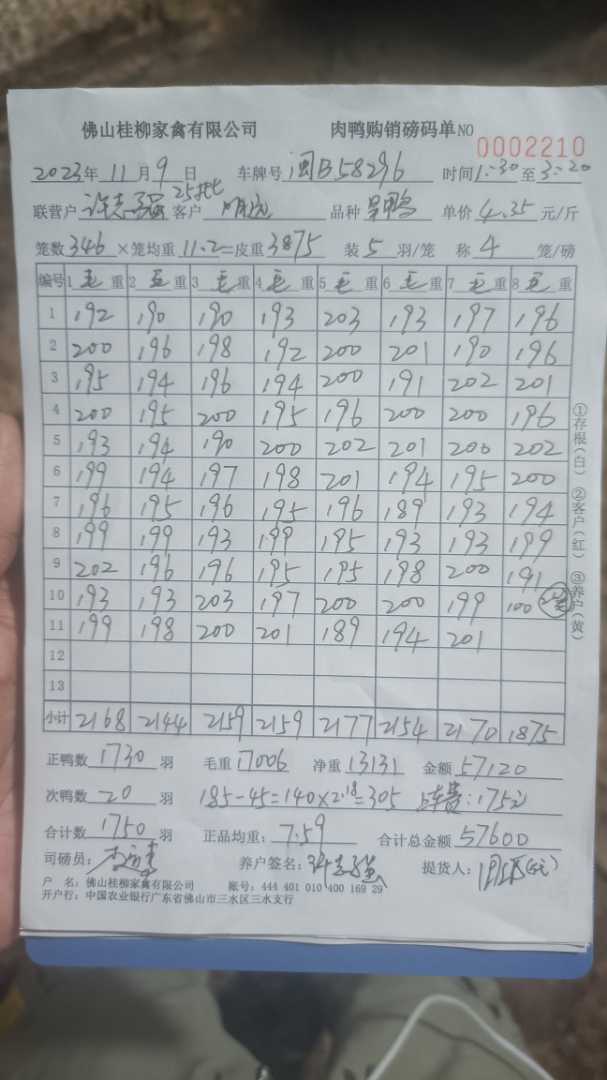 佛山桂柳家禽有限公司 肉鸭购销磅码单 NO 0002210
2023年 11月 9日 车牌号 闽B58296 时间 1:30 至 3:20
联营户 许志强 25批 客户 品种 单价 4.35 元/斤
笼数 346 ×笼均重 11.2 =皮重 3875 装 5 羽/笼 称 4 笼/磅
编号 1 毛 重 2 毛 重 3 毛 重 4 毛 重 5 毛 重 6 毛 重 7 毛 重 8 毛 重
1 192 190 190 193 203 193 197 196
2 200 196 198 192 200 201 190 196
3 195 194 196 194 200 191 202 201
4 200 195 200 195 196 200 200 196
5 193 194 190 200 202 201 200 202
6 199 194 197 198 201 194 195 200
7 196 195 196 195 196 189 193 194
8 199 199 193 199 195 193 193 199
9 202 196 196 195 195 198 200 191
10 193 193 203 197 200 200 199 100
11 199 198 200 201 189 194 201
12
13
小计 2168 2144 2159 2159 2177 2154 2170 1875
①存根(白) ②客户(红) ③养户(黄)
正鸭数 1730 羽 毛重 17006 净重 13131 金额 57120
次鸭数 20 羽 185-45=140×2.18=305 175元
合计数 1750 羽 正品均重: 7.59 合计总金额 57600
司磅员: 养户签名: 许志强 提货人:
户 名: 佛山桂柳家禽有限公司 账号: 444 401 010 400 169 29
开户行: 中国农业银行广东省佛山市三水区三水支行